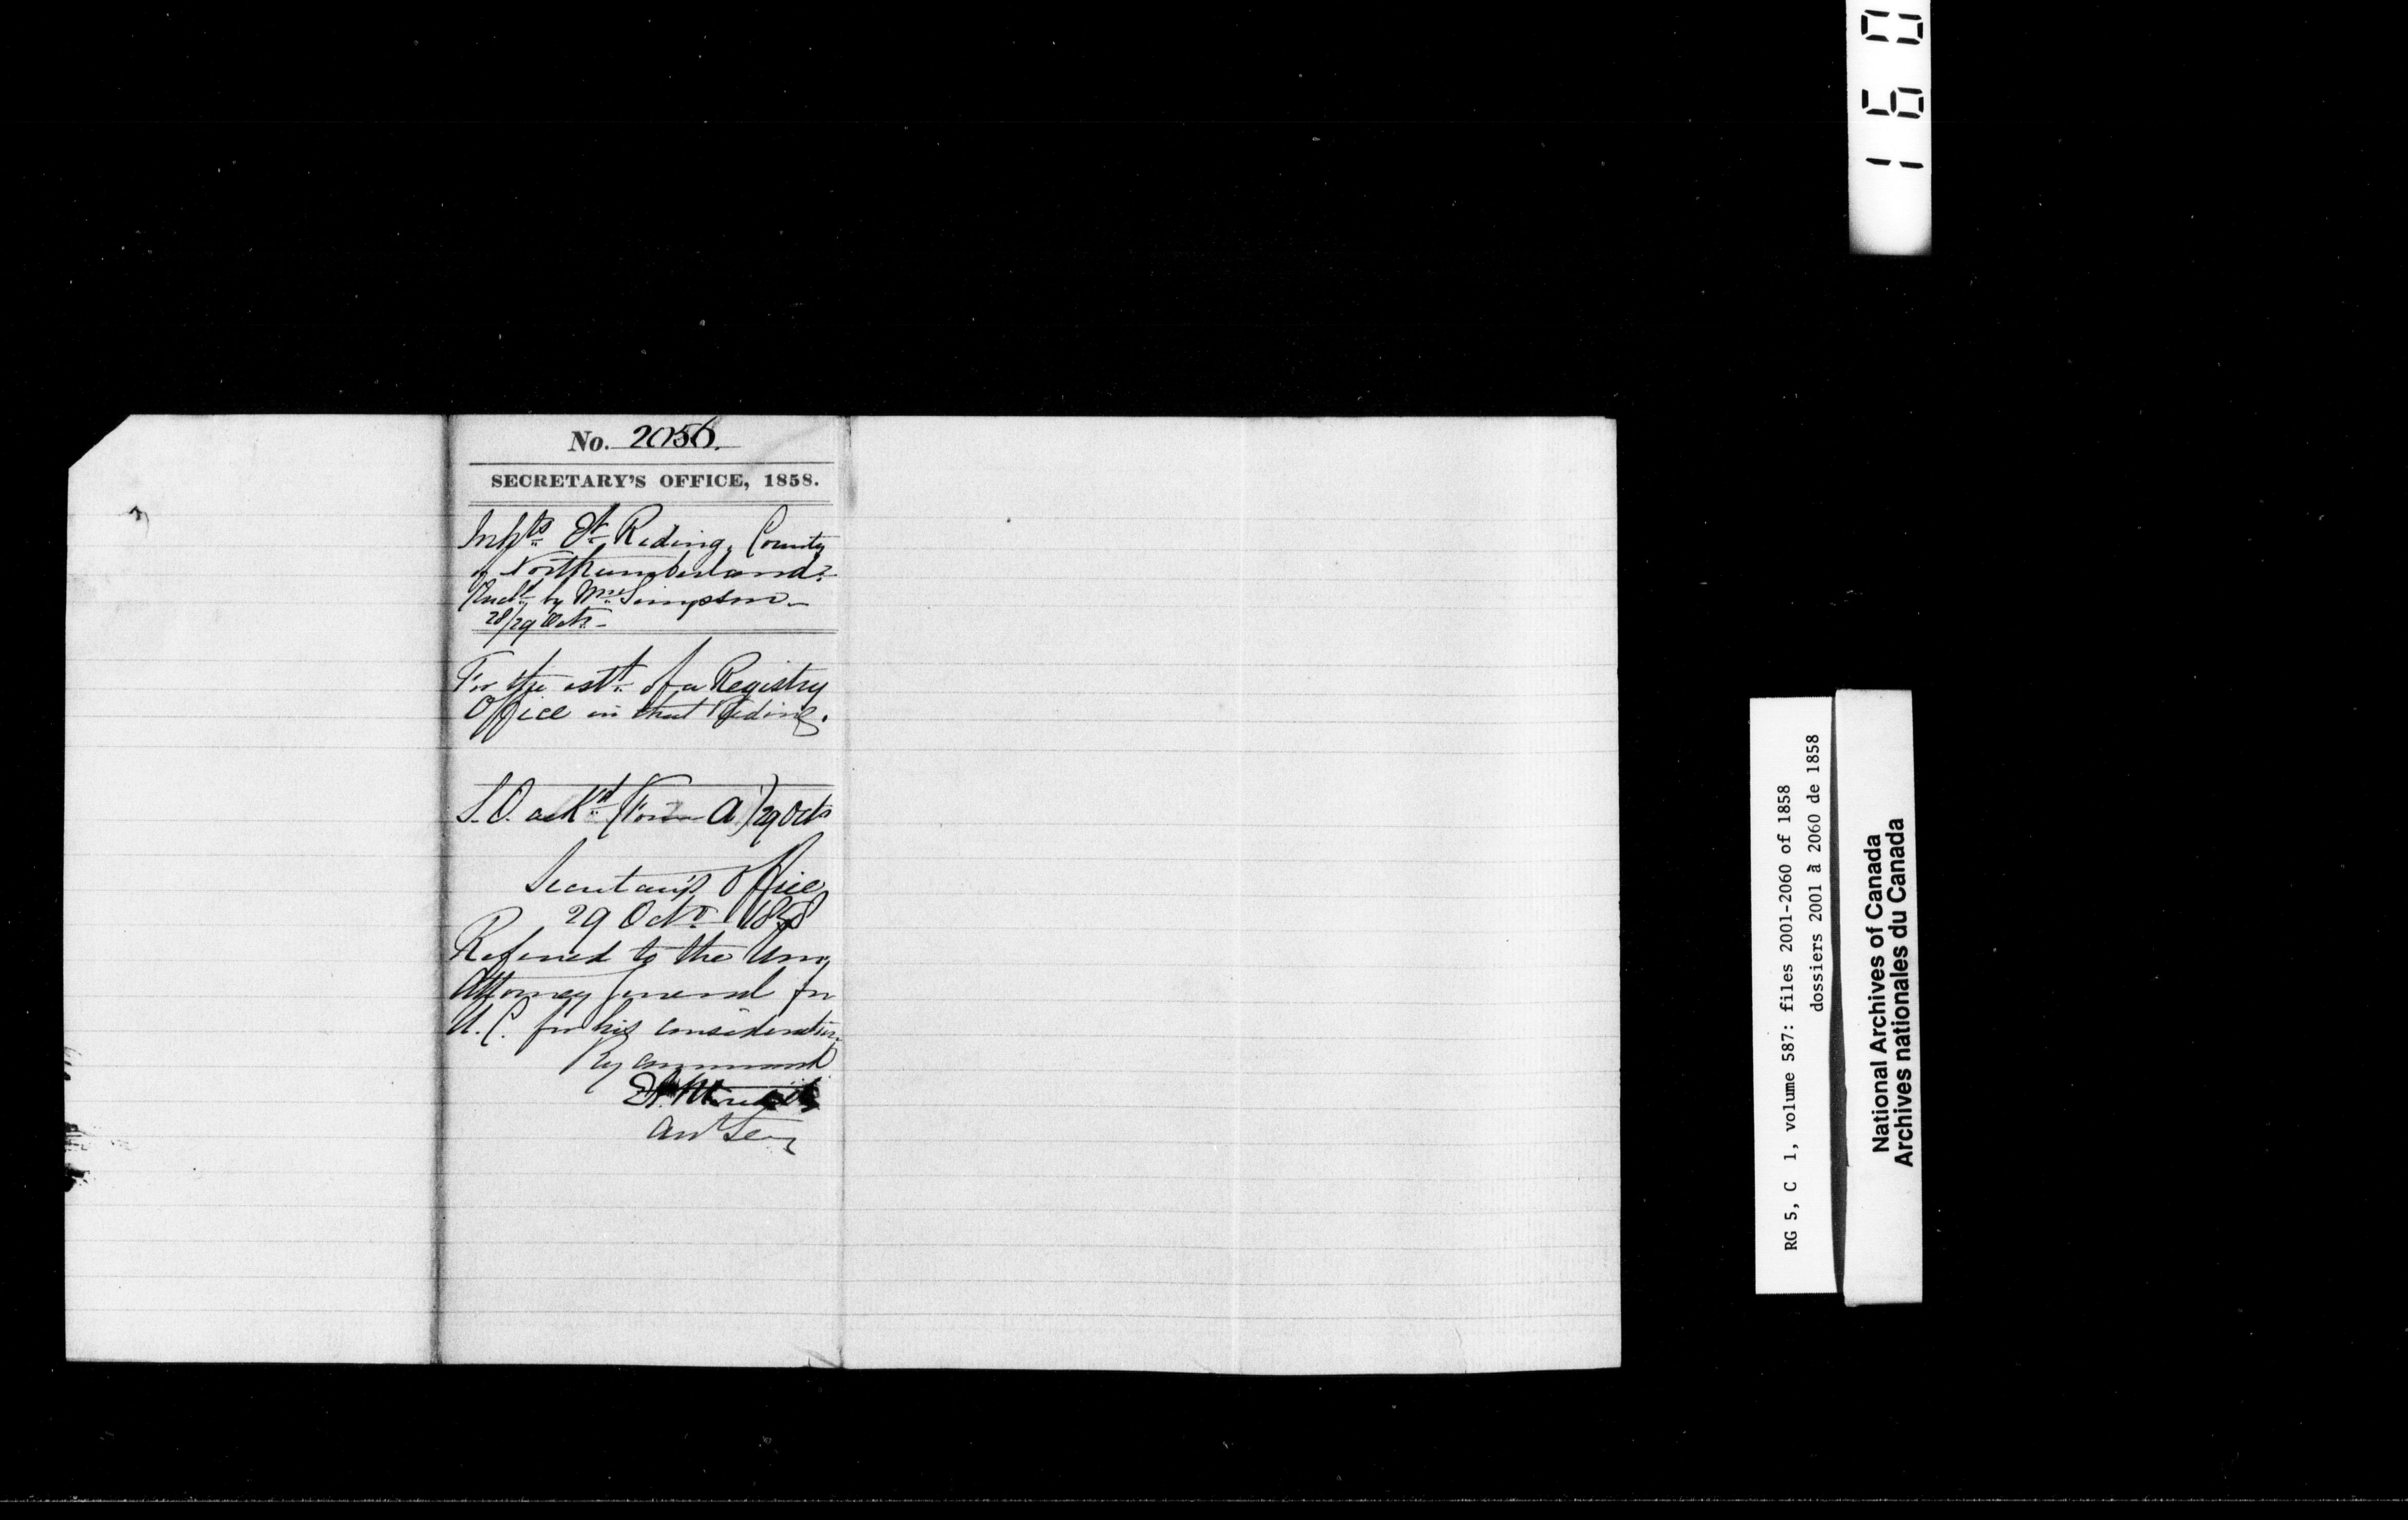 No. 2056.
SECRETARY'S OFFICE, 1858.
Inhts Et Riding, County
of Northumberland
by Mr Simpson
28/29 Oct.
For the estt. of a Registry
Office in that Riding.
S.O. ackd (Form A) 29 Octr
Secretary's Office
29 Octr 1858
Referred to the Hon
Attorney General for
U.C. for his consideration
By command
E.A. Meredith
Asst Secy
160
RG 5, C 1, volume 587: files 2001-2060 of 1858
dossiers 2001 à 2060 de 1858
National Archives of Canada
Archives nationales du Canada